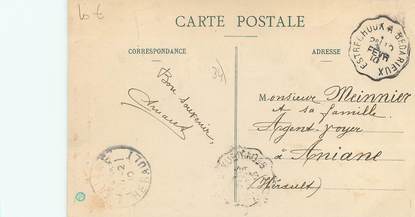 CARTE POSTALE
CORRESPONDANCE
ADRESSE
ESTRECHOUX A BEDARIEUX
FEVR
10
Bon souvenir,
Monsieur Meinnier
et sa famille
Agent-voyer
à Aniane
(Hérault)